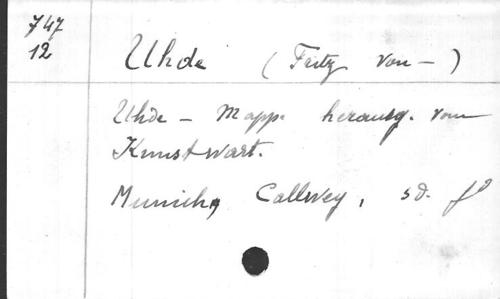 747
12
Uhde (Fritz von —)
Uhde - Mapp. herausg. vom
Kunstwart.
Munich, Callwey, sd. fº